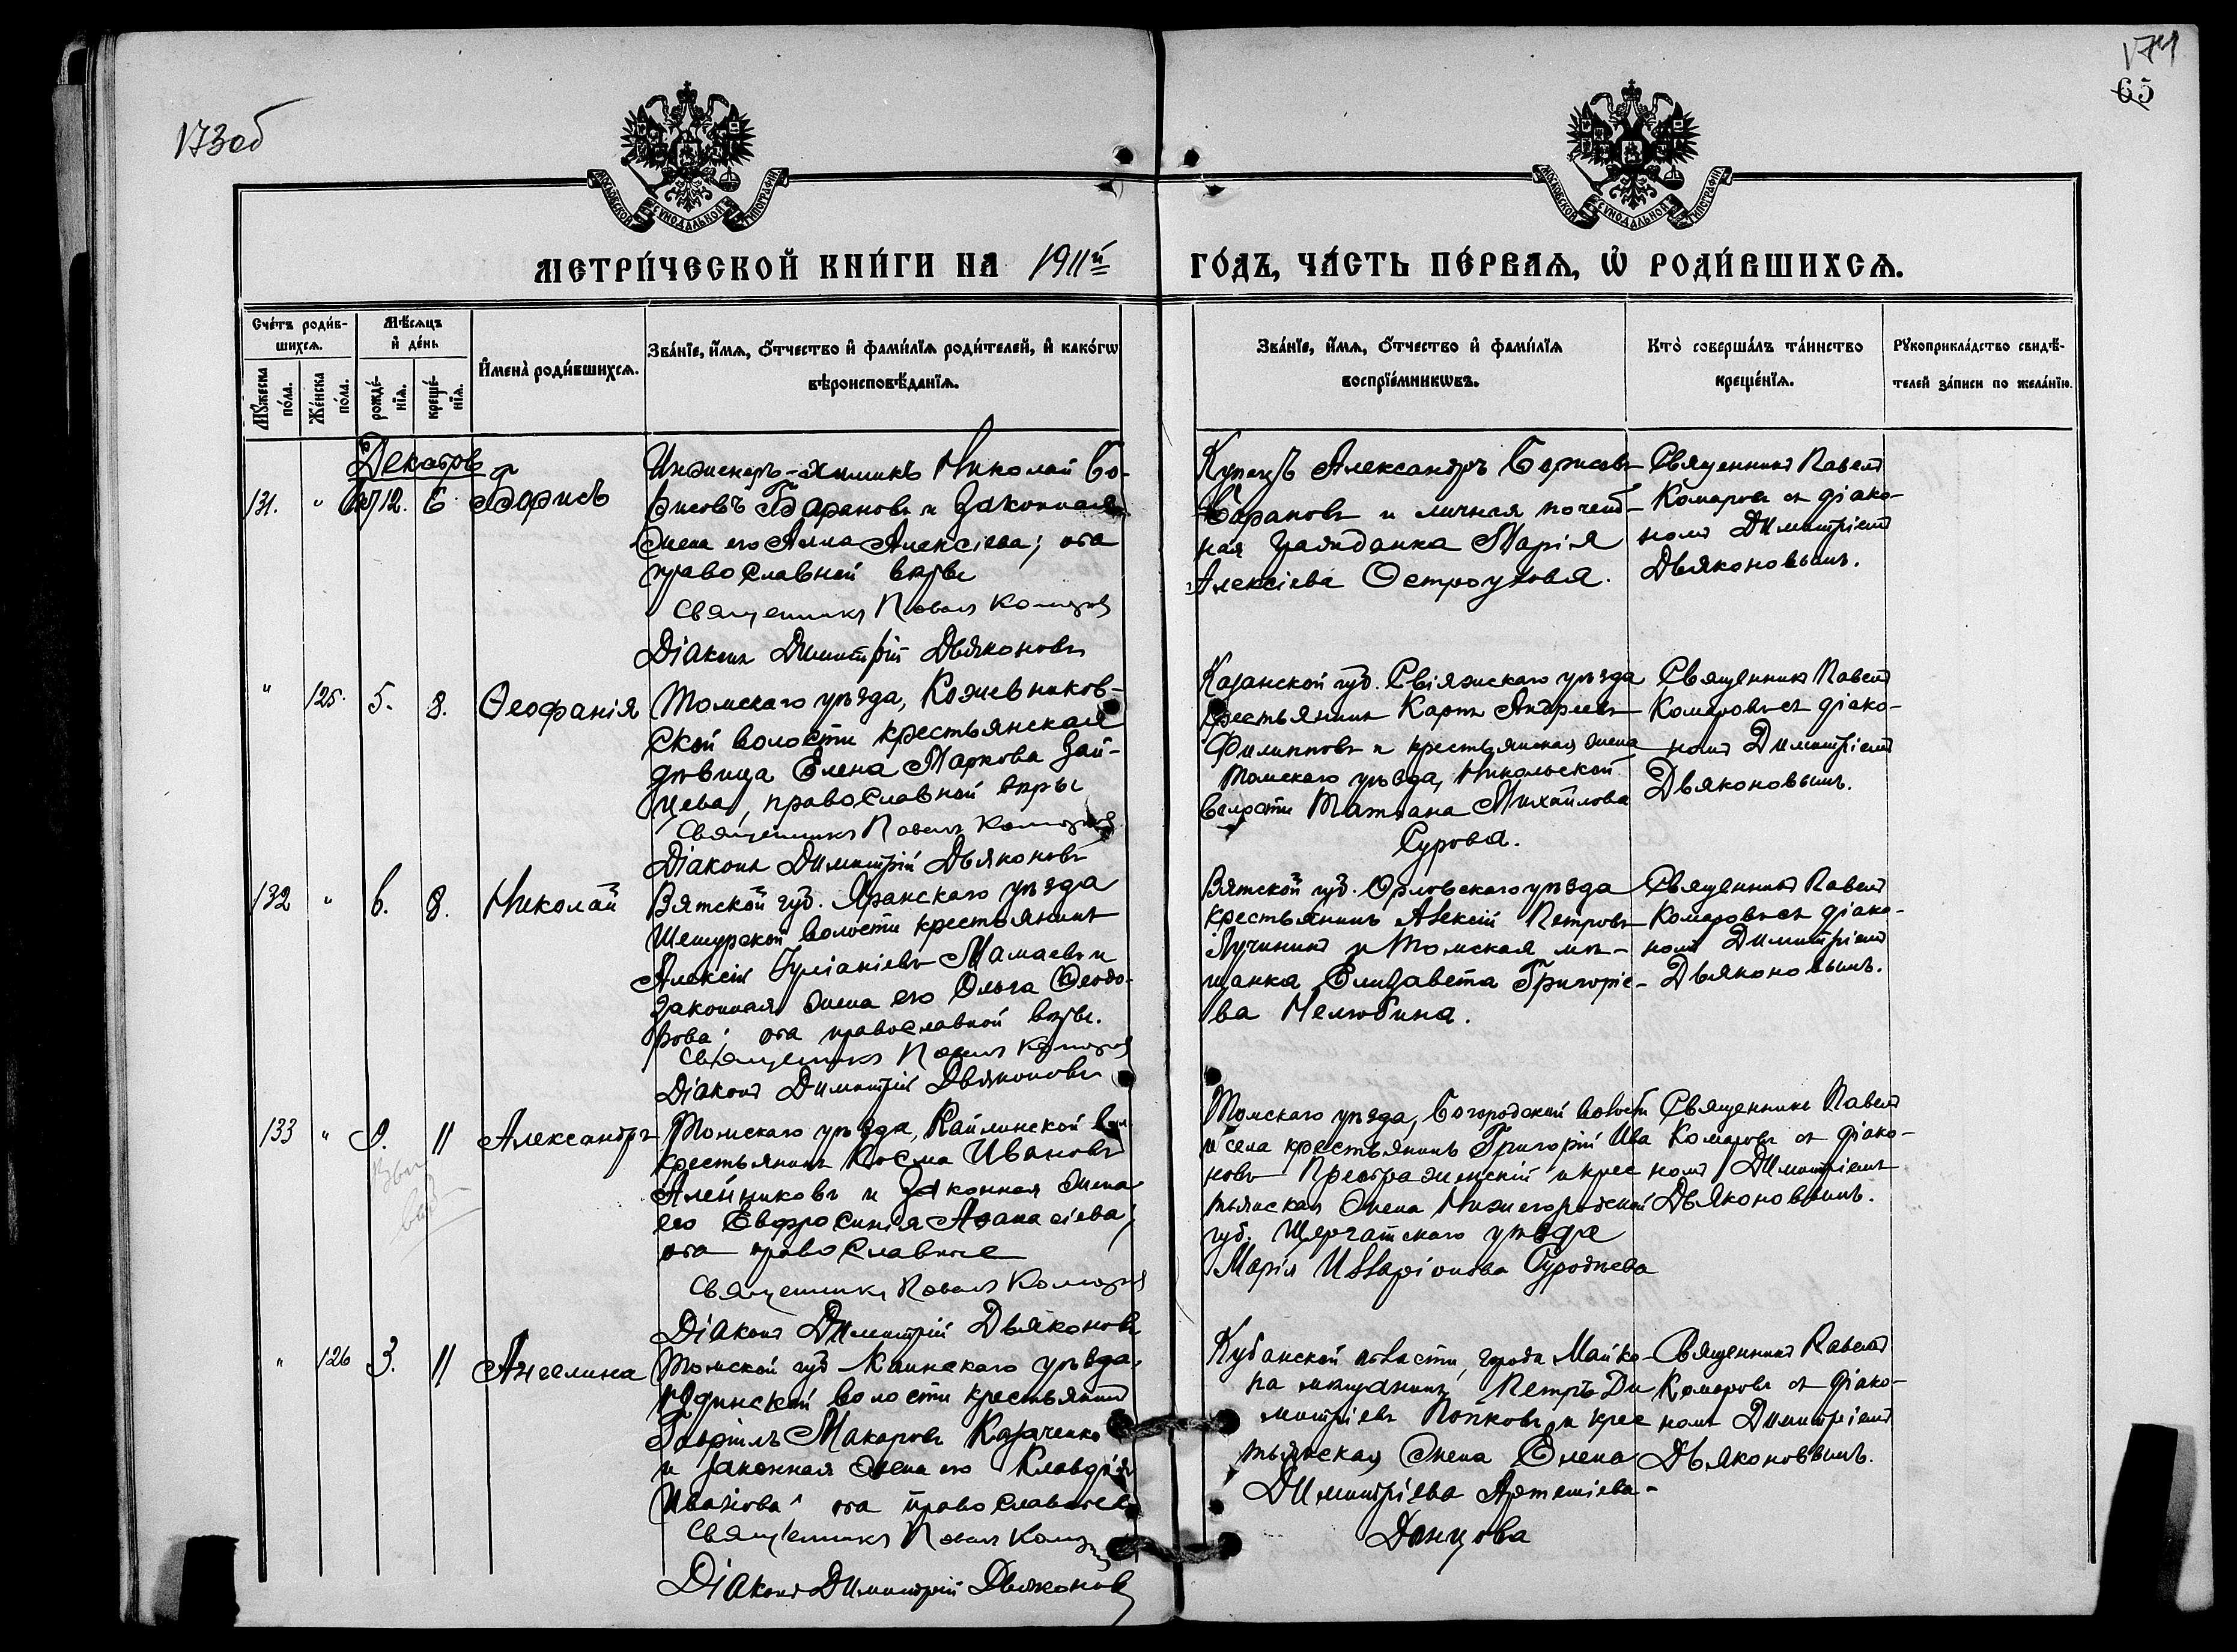 173об
174
65
МОСКОВСКОЙ СѴНОДАЛЬНОЙ ТИПОГРАФІИ
МОСКОВСКОЙ СѴНОДАЛЬНОЙ ТИПОГРАФІИ
МЕТРИ́ЧЕСКОЙ КНИ́ГИ НА 1911й ГО́ДЪ, ЧА́СТЬ ПЕ́РВАѦ, Ѡ҆ РОДИ́ВШИХСѦ.
Сче́тъ роди́в-
шихсѧ.
Мѣ́сѧцъ
и҆ де́нь
Мꙋ́жеска по́ла.
Же́нска по́ла.
рожде́-нїѧ.
креще́-нїѧ.
И҆мена̀ роди́вшихсѧ.
Зва́нїе, и҆́мѧ, ѻ҆́тчество и҆ фами́лїѧ роди́телей, и҆ како́гѡ
вѣроисповѣ́данїѧ.
Зва́нїе, и҆́мѧ, ѻ҆́тчество и҆ фами́лїѧ
воспрїе́мникѡвъ.
Кто̀ соверша́лъ та́инство
креще́нїѧ.
Рꙋкоприкла́дство свидѣ́-
телей за́писи по жела́нїю.
Декабрь
131. " 12. 6 Борисъ
Инженеръ-химикъ Николай Бо-
рисовъ Барановъ и законная
жена его Анна Алексіева; оба
православной вѣры
Священникъ Павелъ Комаровъ
Діаконъ Димитрій Дьяконовъ
Купецъ Александръ Борисовъ
Барановъ и личная почет-
ная гражданка Марія
Алексіева Остроумова.
Священникъ Павелъ
Комаровъ съ діако-
номъ Димитріемъ
Дьяконовымъ.
" 125. 5. 8. Ѳеофанія
Томскаго уѣзда, Кожевников-
ской волости крестьянская
дѣвица Елена Маркова Зай-
цева, православной вѣры
Священникъ Павелъ Комаровъ
Діаконъ Димитрій Дьяконовъ
Казанской губ. Свіяжскаго уѣзда
крестьянинъ Карпъ Андреевъ
Филипповъ и крестьянская жена
Томскаго уѣзда, Никольской
волости Татіана Михайлова
Сурова.
Священникъ Павелъ
Комаровъ съ діако-
номъ Димитріемъ
Дьяконовымъ.
132 " 6. 8. Николай
Вятской губ. Яранскаго уѣзда
Шешурской волости крестьянинъ
Алексій Мамаевъ и
законная жена его Ольга Ѳеодо-
рова; оба православной вѣры.
Священникъ Павелъ Комаровъ
Діаконъ Димитрій Дьяконовъ
Вятской губ. Орловскаго уѣзда
крестьянинъ Алексій Петровъ
Лучининъ и Томская мѣ-
щанка Елизавета Григоріе-
ва Нелюбина.
Священникъ Павелъ
Комаровъ съ діако-
номъ Димитріемъ
Дьяконовымъ.
133 " 9. 11 Александръ
Томскаго уѣзда, Кайлинской вол.
крестьянинъ Косма Ивановъ
Алейниковъ и законная жена
его Евфросинія Аѳанасіева;
оба православные
Священникъ Павелъ Комаровъ
Діаконъ Димитрій Дьяконовъ
Томскаго уѣзда, Богородской волости
и села крестьянинъ Григорій Ива
новъ Преображенскій и крес
тьянская жена Нижегородской
губ. уѣзда
Марія Илларіонова
Священникъ Павелъ
Комаровъ съ діако-
номъ Димитріемъ
Дьяконовымъ.
" 126 3. 11 Ангелина
Томской губ Каинскаго уѣзда,
волости крестьянинъ
Гавріилъ Макаровъ Казаченко
и законная жена его Клавдія
Иванова; оба православные
Священникъ Павелъ Комаровъ
Діаконъ Димитрій Дьяконовъ
Кубанской области, города Майко-
па мѣщанинъ Петръ Ди
митріевъ Попковъ и крес
тьянская жена Елена
Димитріева Артеміева-
Донцова
Священникъ Павелъ
Комаровъ съ діако-
номъ Димитріемъ
Дьяконовымъ.